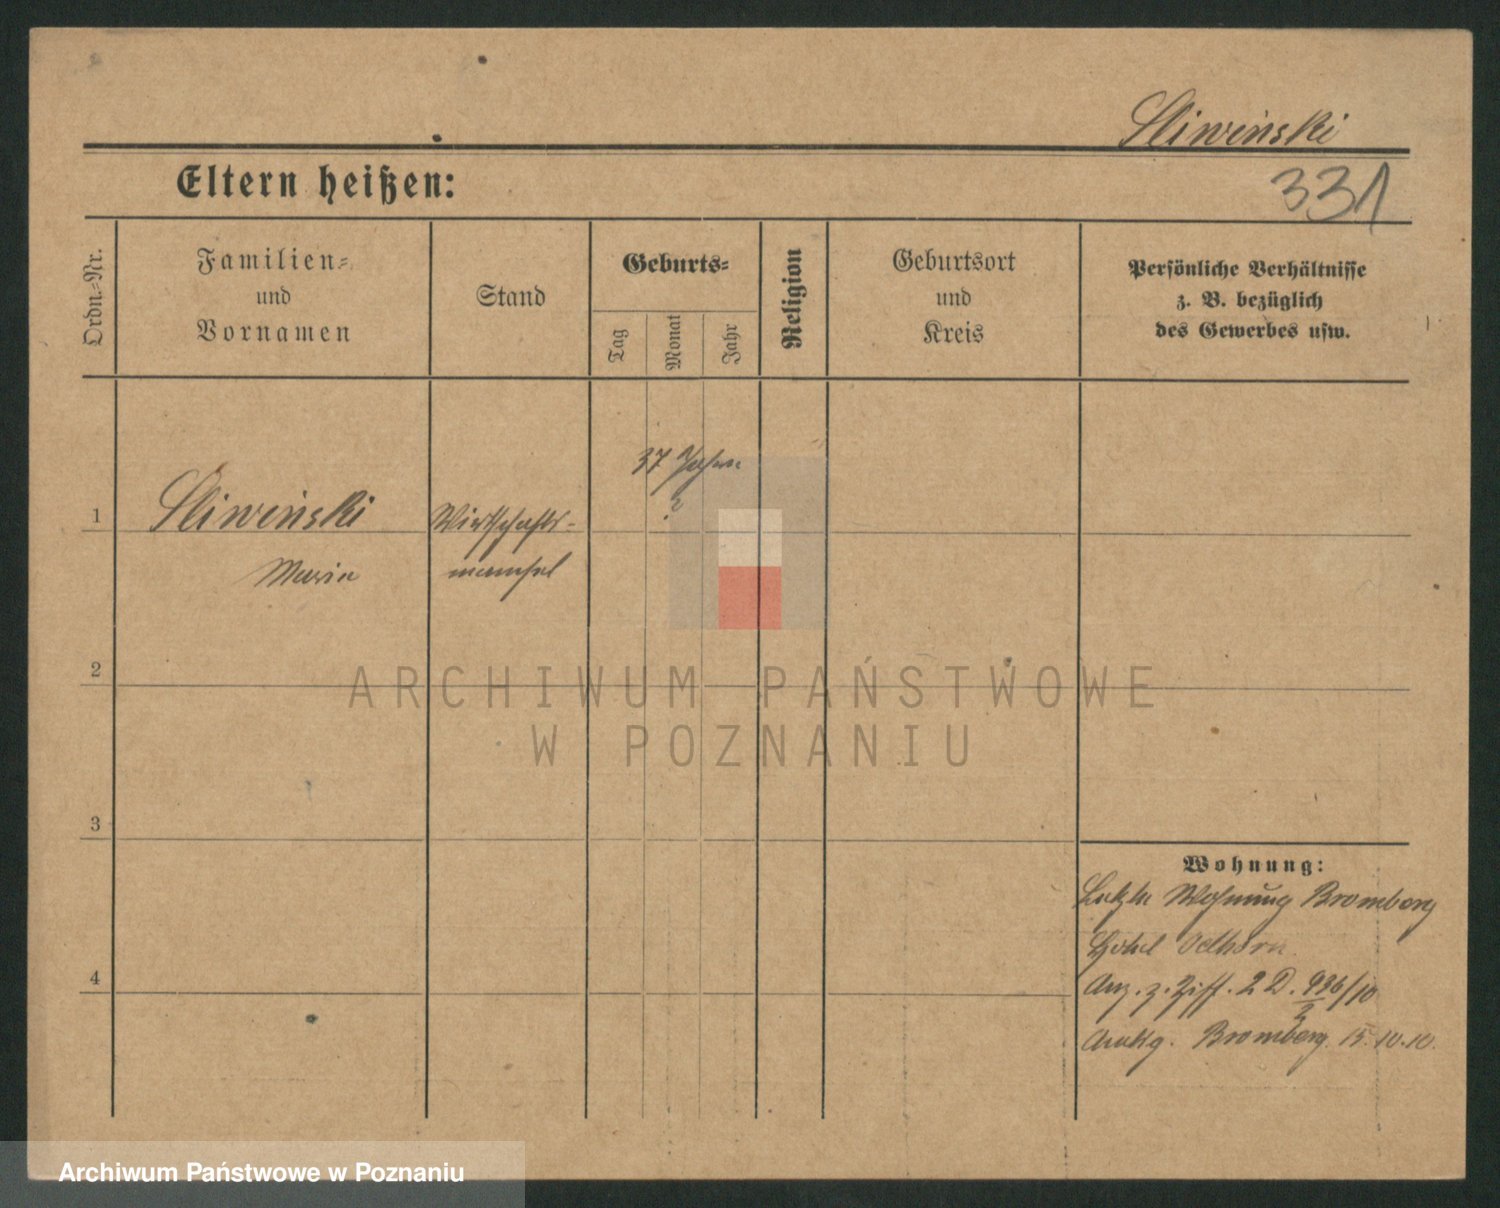 Sliwinski
331
Eltern heißen:
Ordn.=Nr.
Familien=
und
Vornamen
Stand
Geburts=
Tag
Monat
Jahr
Religion
Geburtsort
und
Kreis
Persönliche Verhältnisse
z. B. bezüglich
des Gewerbes usw.
37 Jahre
?
1
Sliwinski
Wirtschafts-
Maria
mamsel
2
ARCHIWUM PAŃSTWOWE
W POZNANIU
3
Wohnung:
Letzte Wohnung Bromberg
Hotel
4
Anz. z. Ziff. 2 D. 996/10
2
Bromberg. 15.10.10.
Archiwum Państwowe w Poznaniu